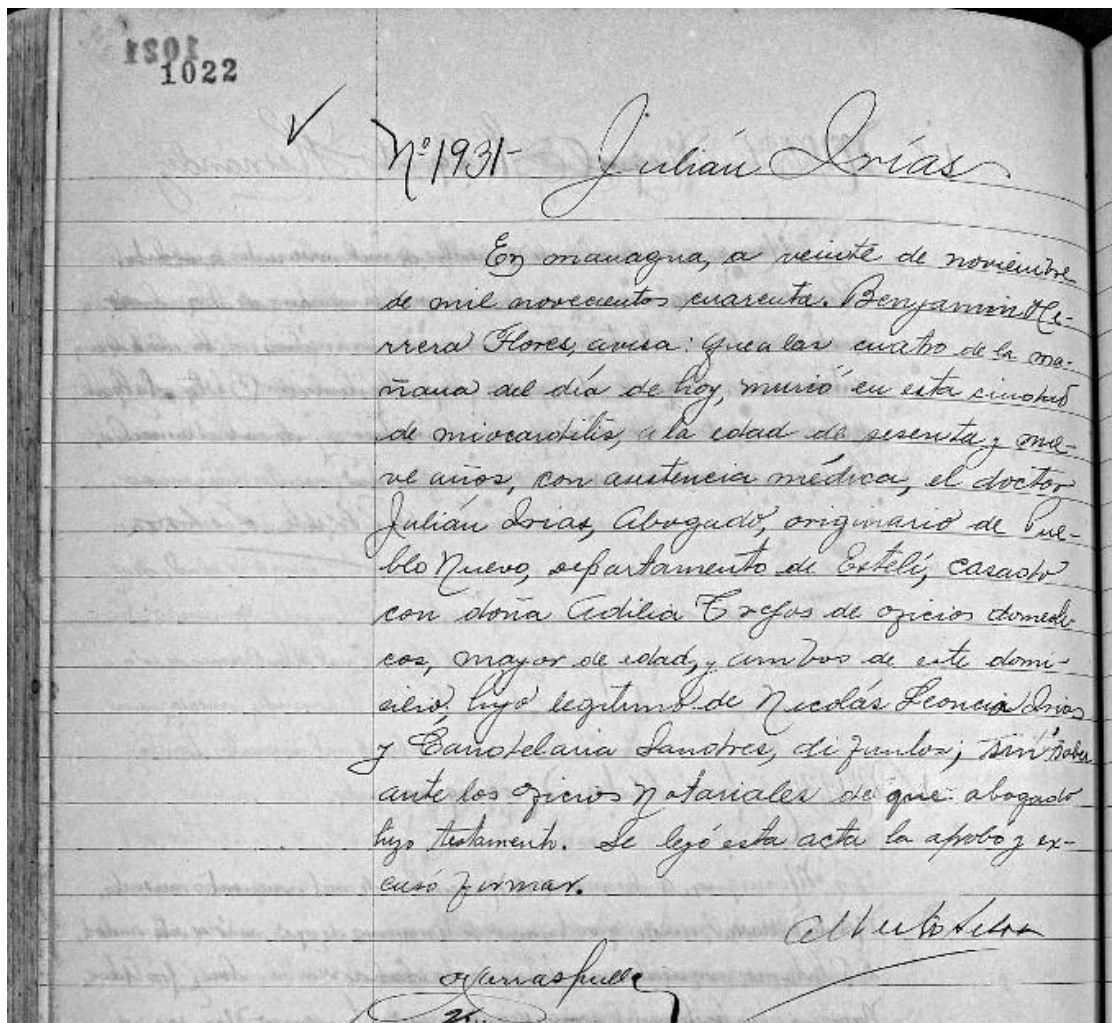 1021
1022
Nº 1931- Julián Irías
En managua, a veinte de noviembre
de mil novecientos cuarenta. Benjamin He-
rrera Flores, avisa: que a las cuatro de la ma-
ñana del día de hoy, murió en esta ciudad
de miocarditis, a la edad de sesenta y nue-
ve años, con asistencia médica, el doctor
Julián Irias, Abogado, originario de Pue-
blo Nuevo, departamento de Estelí, casado
con doña Adilia Trejos de oficios domésti-
cos, mayor de edad, y ambos de este domi-
cilio, hijo legitimo de Nicolás Leoncio Irias
y Candelaria Sandres, difuntos; sin saber
ante los oficios Notariales de que abogado
hizo testamento. Se leyó esta acta la aprobó y ex-
cusó firmar.